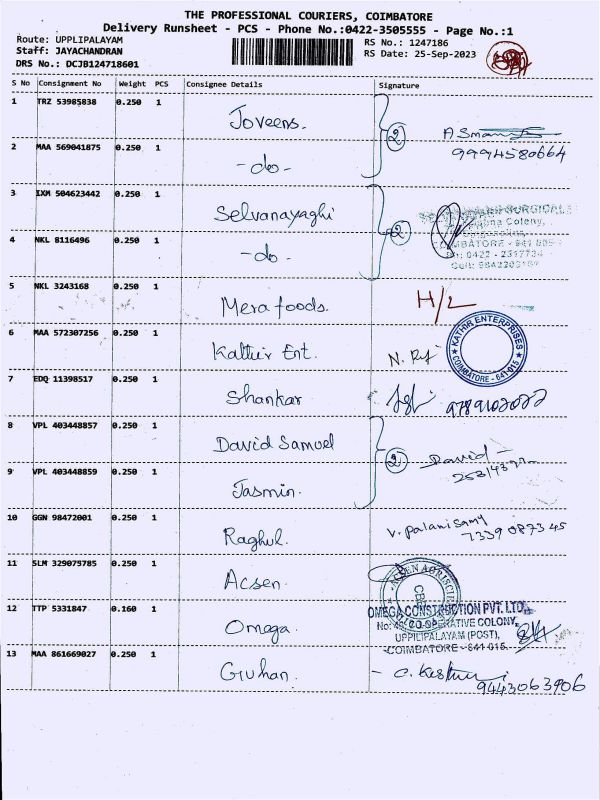 THE PROFESSIONAL COURIERS, COIMBATORE
Delivery Runsheet - PCS - Phone No.:0422-3505555 - Page No.:1
Route: UPPLIPALAYAM
RS No.: 1247186
Staff: JAYACHANDRAN
RS Date: 25-Sep-2023
DRS No.: DCJB124718601
S No Consignment No Weight PCS Consignee Details Signature
1 TRZ 53985838 0.250 1 Joveens. 2
9994580664
2 MAA 569041875 0.250 1 -do-
3 IXM 504623442 0.250 1 Selvanayaghi 2
4 NKL 8116496 0.250 1 -do-
5 NKL 3243168 0.250 1 Mera foods. H/L
6 MAA 572307256 0.250 1 Kathir Ent. KATHIR ENTERPRISES COIMBATORE - 641 015
7 EDQ 11398517 0.250 1 Shankar
8 VPL 403448857 0.250 1 David Samuel 2 David
9 VPL 403448859 0.250 1 Jasmin.
10 GGN 98472001 0.250 1 Raghul. V. Palanisamy
7339087345
11 SLM 329075785 0.250 1 Acsen.
12 TTP 5331847 0.160 1 Omega. OMEGA CONSTRUCTION PVT. LTD.,
CO-OPERATIVE COLONY,
UPPILIPALAYAM (POST),
COIMBATORE - 641 015.
13 MAA 861669027 0.250 1 Guhan.
9443063906